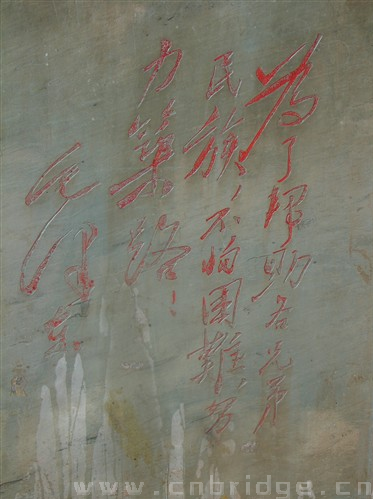 為了帮助各兄弟
民族，不怕困難，努
力築路！
毛泽东
www.cnbridge.cn